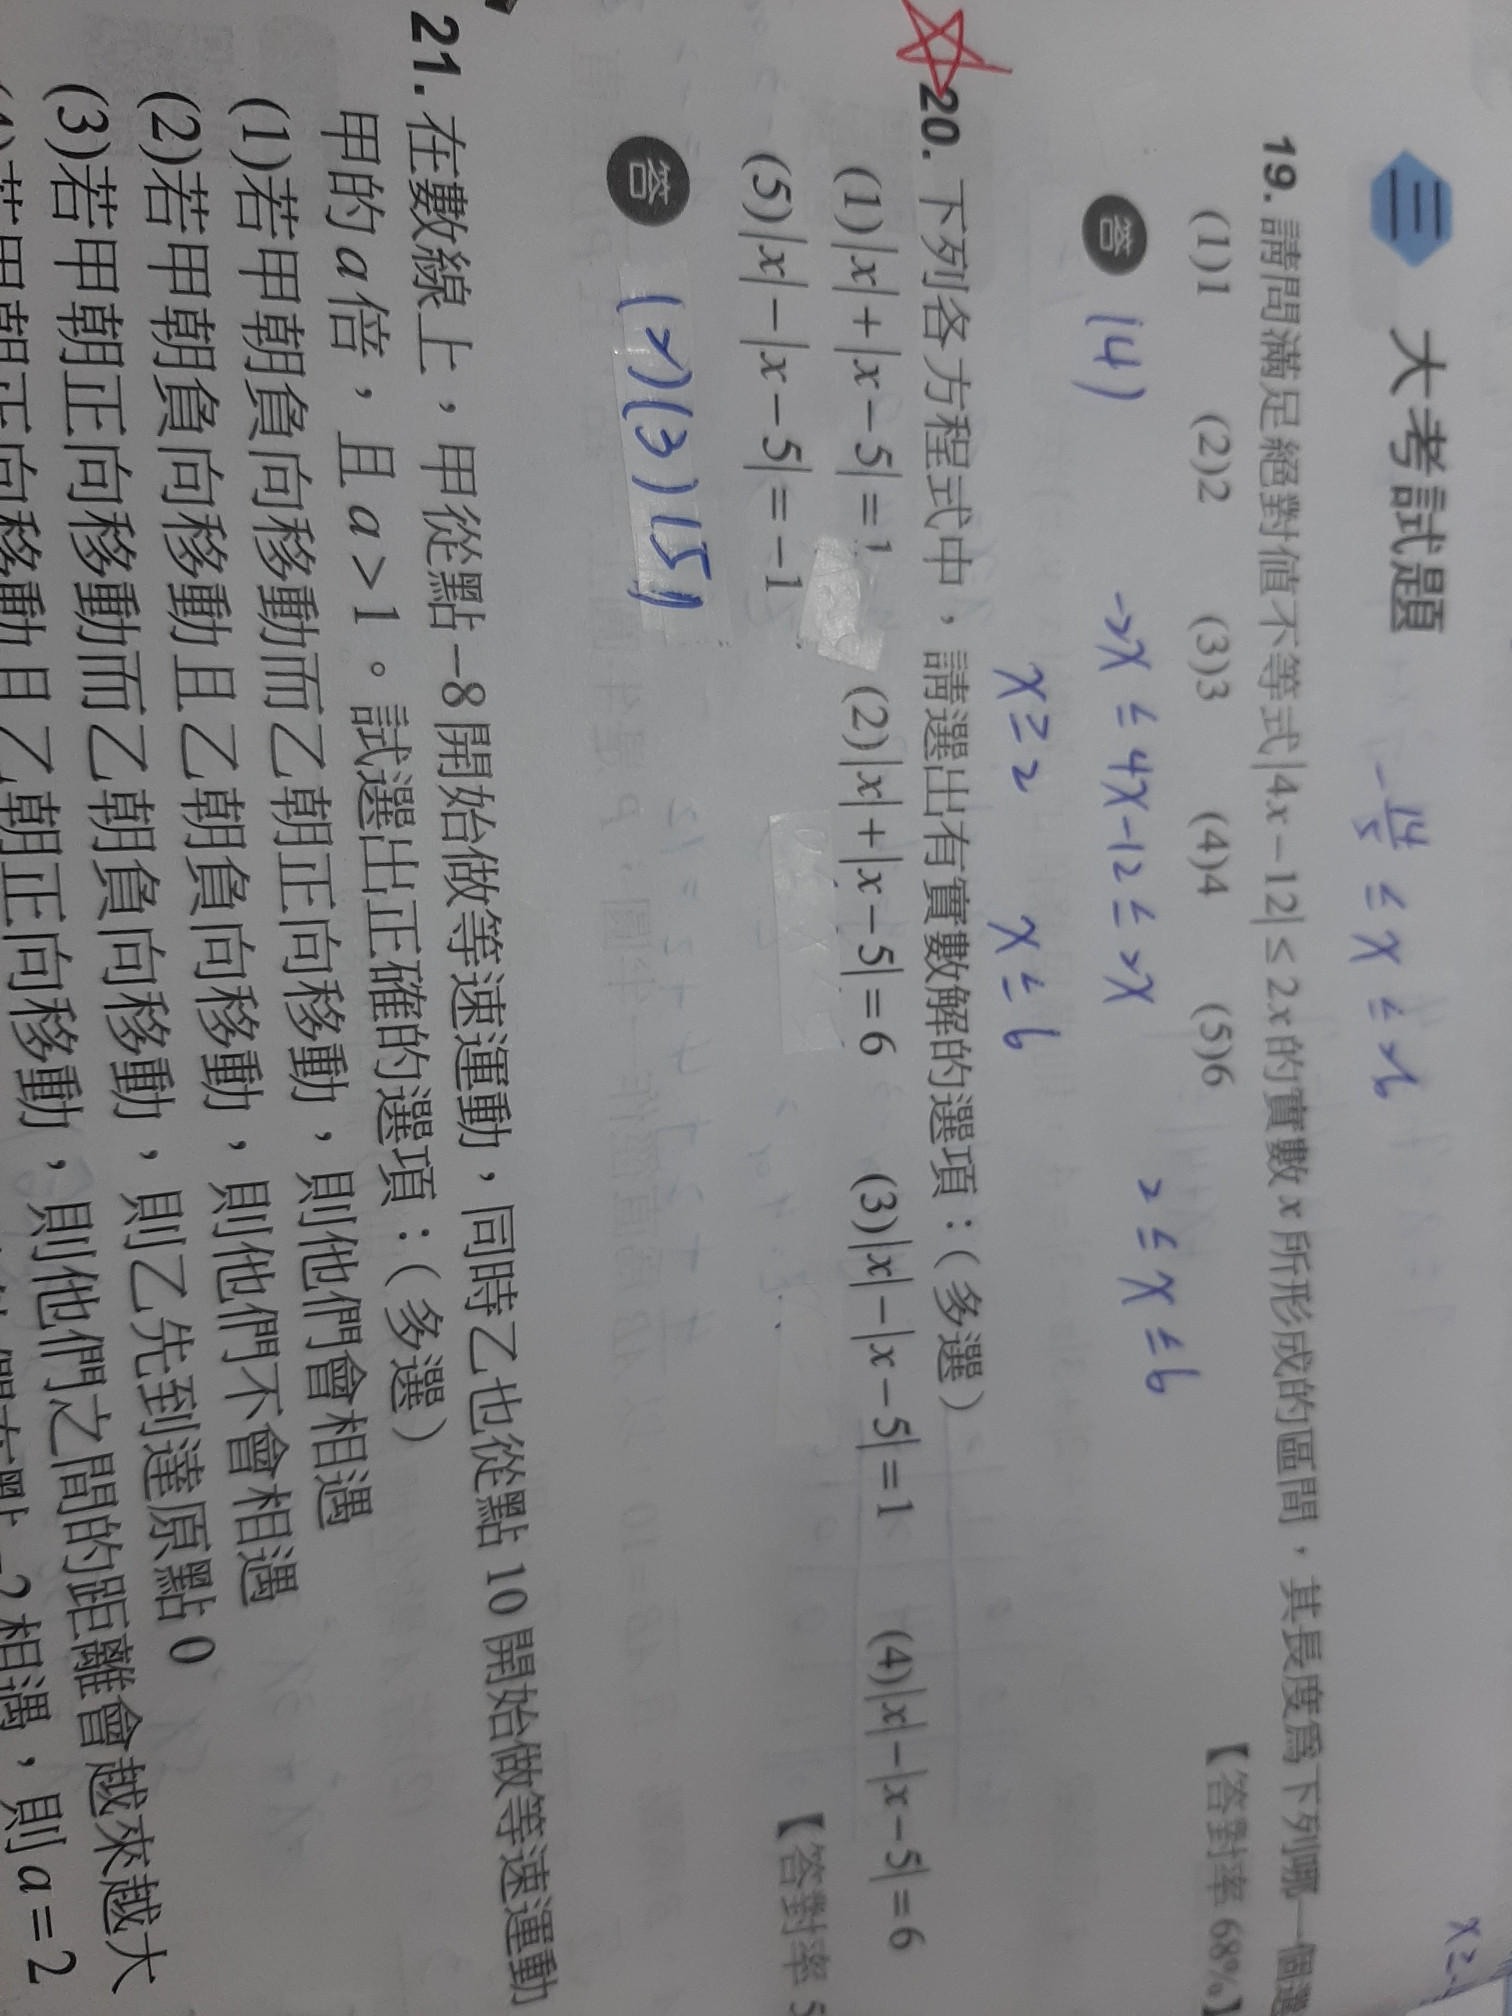 三 大考試題
-14/5 ≤ x ≤ 26
x ≥ -
19. 請問滿足絕對值不等式|4x-12|≤2x的實數x所形成的區間，其長度為下列哪一個選
(1)1 (2)2 (3)3 (4)4 (5)6
【答對率 68%】
答 (4)
-2x ≤ 4x-12 ≤ 2x
2 ≤ x ≤ 6
x ≥ 2 x ≤ 6
20. 下列各方程式中，請選出有實數解的選項：（多選）
(1)|x|+|x-5|=1 (2)|x|+|x-5|=6 (3)|x|-|x-5|=1 (4)|x|-|x-5|=6
(5)|x|-|x-5|=-1
【答對率 5
答 (2)(3)(5)
21. 在數線上，甲從點-8開始做等速運動，同時乙也從點10開始做等速運動
甲的a倍，且a>1。試選出正確的選項：（多選）
(1)若甲朝負向移動而乙朝正向移動，則他們會相遇
(2)若甲朝負向移動且乙朝負向移動，則他們不會相遇
(3)若甲朝正向移動而乙朝負向移動，則乙先到達原點0
(4)若甲朝正向移動且乙朝正向移動，則他們之間的距離會越來越大
-2相遇，則a=2